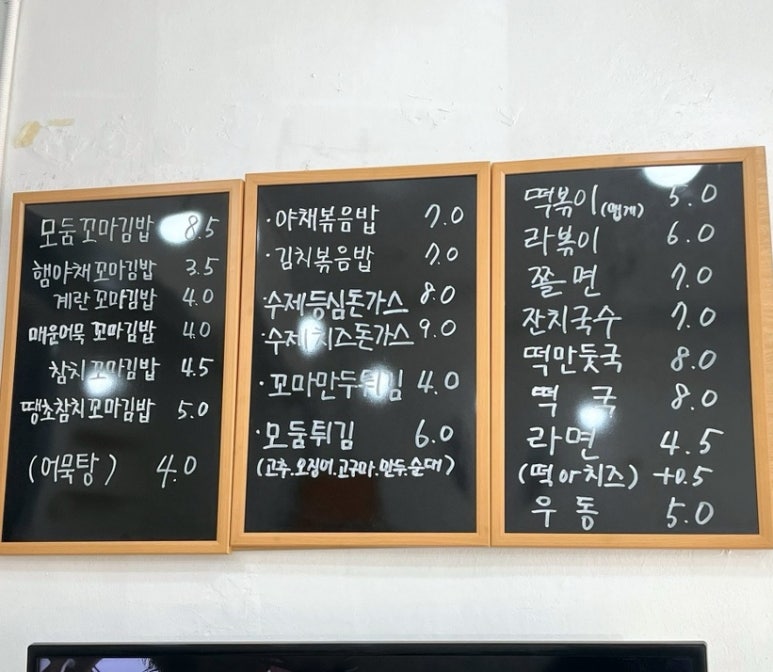 모둠꼬마김밥 8.5
햄야채꼬마김밥 3.5
계란 꼬마김밥 4.0
매운어묵 꼬마김밥 4.0
참치꼬마김밥 4.5
땡초참치꼬마김밥 5.0
(어묵탕) 4.0
·야채볶음밥 7.0
·김치볶음밥 7.0
·수제등심돈가스 8.0
·수제치즈돈가스 9.0
·꼬마만두튀김 4.0
·모둠튀김 6.0
(고추.오징어.고구마.만두.순대)
떡볶이(맵게) 5.0
라볶이 6.0
쫄면 7.0
잔치국수 7.0
떡만둣국 8.0
떡국 8.0
라면 4.5
(떡or치즈) +0.5
우동 5.0